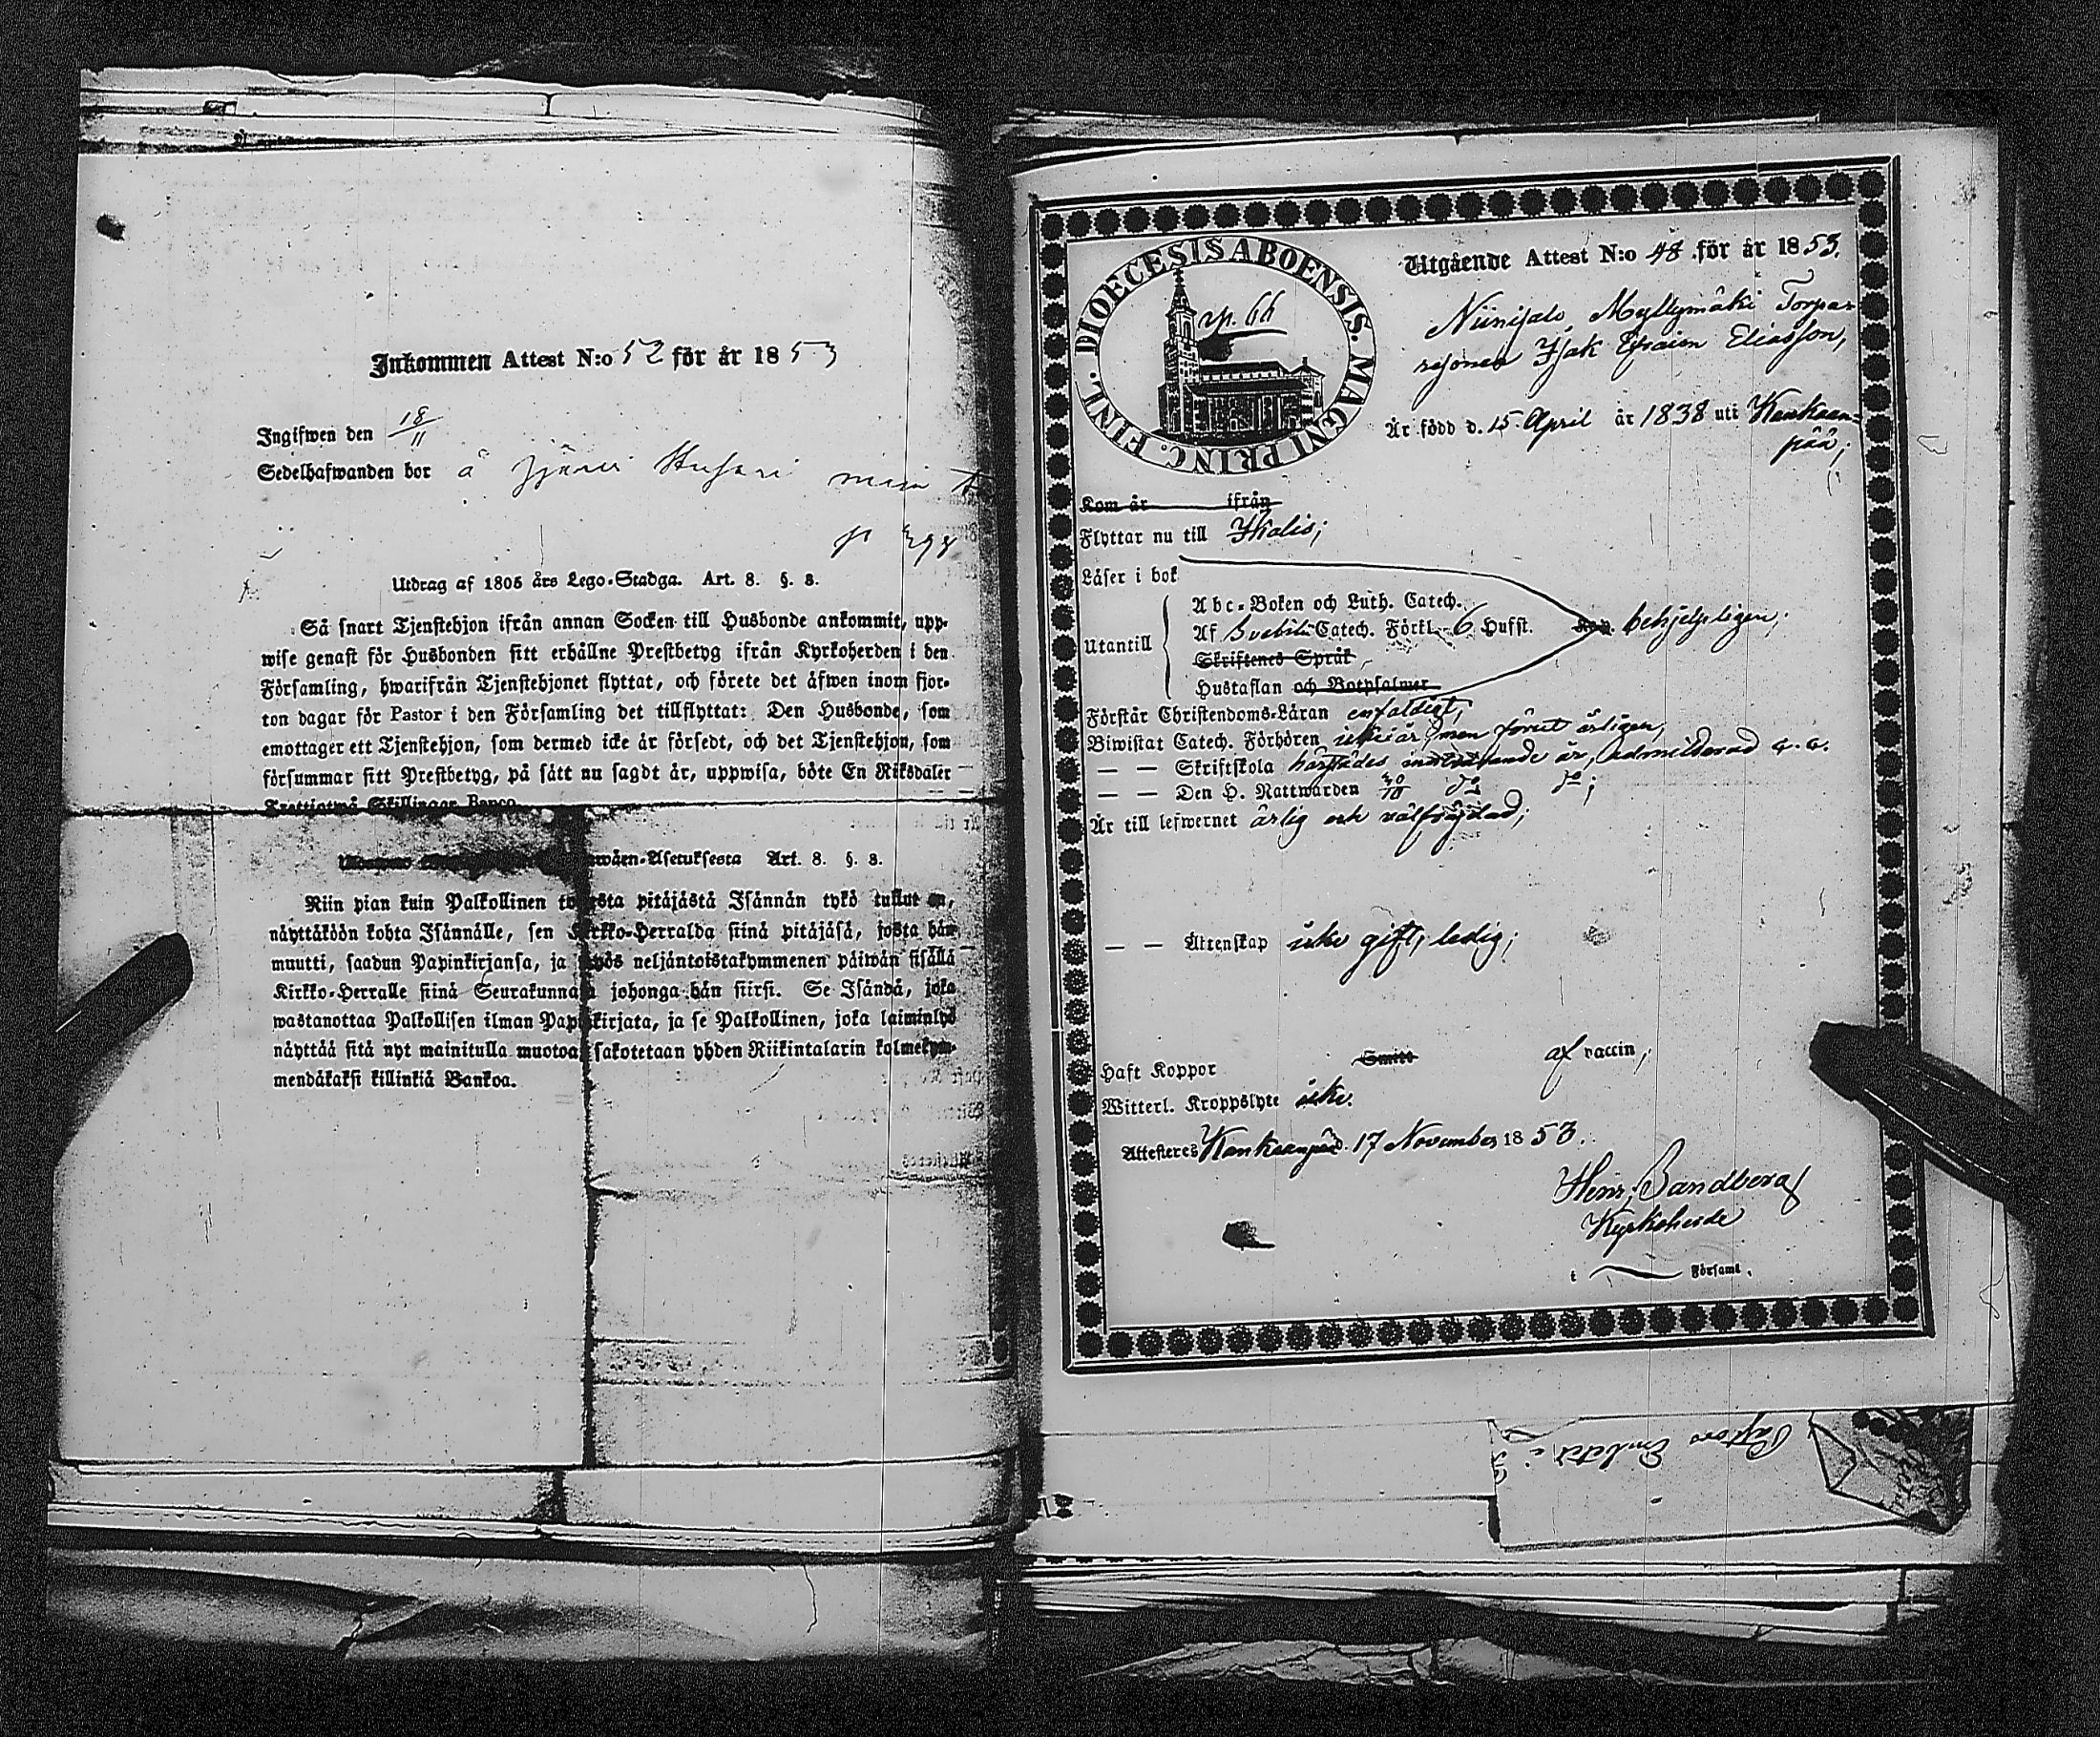 Inkommen Attest N:o 52 för år 1853
Ingifwen den 18/11
Sedelhafwanden bor å
Utdrag af 1805 års Lego-Stadga. Art. 8. §. 8.
Så snart Tjenstehjon ifrån annan Socken till Husbonde ankommit, upp-
wise genast för Husbonden sitt erhållne Prestbetyg ifrån Kyrkoherden i den
Församling, hwarifrån Tjenstehjonet flyttat, och förete det äfwen inom fjor-
ton dagar för Pastor i den Församling det tillflyttat: Den Husbonde, som
emottager ett Tjenstehjon, som dermed icke är försedt, och det Tjenstehjon, som
försummar sitt Prestbetyg, på sätt nu sagdt är, uppwisa, böte En Riksdaler
Trettiotwå Skillingar Banco.
Asetuksesta Art. 8. §. 8.
Niin pian kuin Palkollinen toisesta pitäjästä Isännän tykö tullut on,
näyttäköön kohta Isännälle, sen Kirkko-Herralda siinä pitäjäsä, josta hän
muutti, saadun Papinkirjansa, ja myös neljäntoistakymmenen päiwän sisällä
Kirkko-Herralle siinä Seurakunnasa johonga hän siirsi. Se Isändä, joka
wastanottaa Palkollisen ilman Papinkirjata, ja se Palkollinen, joka laiminlyö
näyttää sitä nyt mainitulla muotoa, sakotetaan yhden Riikintalarin kolmekym-
mendäkaksi killinkiä Bankoa.
DIOECESIS ABOENSIS. MAGNI PRINC. FINL.
p. 66
Utgående Attest N:o 48 för år 1853.
Niinisalo Myllymäki Torpar
sonen Isak Efraim Eliasson,
Är född d. 15 April år 1838 uti Kankaan-
pää;
Kom år ifrån
Flyttar nu till Ikalis;
Läser i bok
Abc-Boken och Luth. Catech.
Utantill
Af Svebili Catech. Förkl. 6 Hufst.
behjelpligen;
Skriftenes Språk
Hustaflan och Botpsalmer
Förstår Christendoms-Läran enfaldigt;
Biwistat Catech. Förhören icke i år, men förut årligen;
— — Skriftskola härstädes innevarande år, admitterad
— — Den H. Nattwarden 30/10 do do;
Är till lefwernet ärlig och välfrejdad;
— — Äktenskap icke gift, ledig;
Haft Koppor Smitt af vaccin;
Witterl. Kroppslyte icke.
Attesteres Kankaanpää d. 17 November 1853.
Henr. Sandberg
Kyrkoherde
i Församl.
Pastors Embetet i